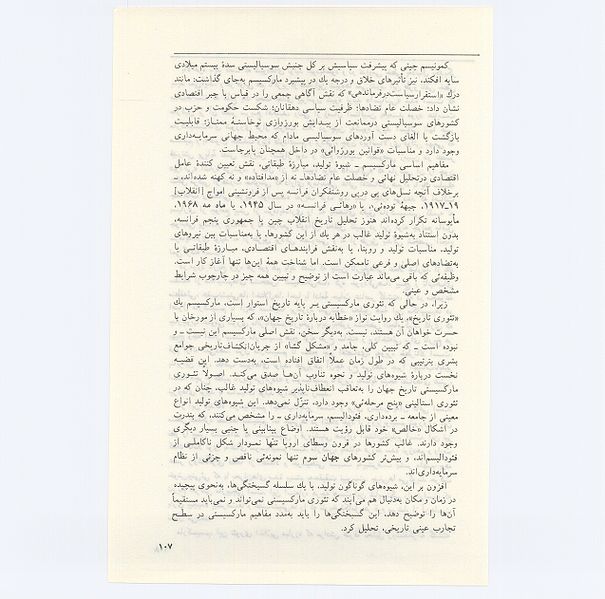 کمونیسم چینی که پیشرفت سیاسیش بر کل جنبش سوسیالیستی سدهٔ بیستم میلادی
سایه افکند، نیز تأثیرهای خلاق و درجه یک در پیشبرد مارکسیسم به‌جای گذاشت: مانند
درک «استقرار سیاست در فرماندهی» که نقش آگاهی جمعی را در قیاس با جبر اقتصادی
نشان داد؛ خصلت عام تضادها؛ ظرفیت سیاسی دهقانان؛ شکست حکومت و حزب در
کشورهای سوسیالیستی در ممانعت از پیدایش بورژوازی نوخاستهٔ ممتاز؛ قابلیت
بازگشت یا الغای دست آوردهای سوسیالیسی مادام که محیط جهانی سرمایه‌داری
وجود دارد و مناسبات «قوانین بورژوائی» در داخل همچنان پابرجاست.
مفاهیم اساسی مارکسیسم ـ شیوهٔ تولید، مبارزهٔ طبقاتی، نقش تعیین کنندهٔ عامل
اقتصادی در تحلیل نهائی و خصلت عام تضادها ـ نه از «مد افتاده» و نه کهنه شده‌اند، ـ
برخلاف آنچه نسل‌های پی در پی روشنفکران فرانسه پس از فرونشینی امواج [انقلاب]
۱۹ـ۱۹۱۷، جبههٔ توده‌ئی، یا «رهائی فرانسه» در سال ۱۹۴۵، یا ماه مه ۱۹۶۸،
مأیوسانه تکرار کرده‌اند هنوز تحلیل تاریخ انقلاب چین یا جمهوری پنجم فرانسه،
بدون استناد به‌شیوهٔ تولید غالب در هر یک از این کشورها، یا به‌مناسبات بین نیروهای
تولید، مناسبات تولید و روبنا، یا به‌نقش فرایندهای اقتصادی، مبارزهٔ طبقاتی یا
به‌تضادهای اصلی و فرعی ناممکن است. اما شناخت همهٔ این‌ها تنها آغاز کار است.
وظیفه‌ئی که باقی می‌ماند عبارت است از توضیح و تبیین همه چیز در چارچوب شرایط
مشخص و عینی.
زیرا، در حالی که تئوری مارکسیستی بر پایه تاریخ استوار است، مارکسیسم یک
«تئوری تاریخ»، یک روایت نو از «خطابه دربارهٔ تاریخ جهان»، که بسیاری از مورخان با
حسرت خواهان آن هستند، نیست. به‌دیگر سخن، نقش اصلی مارکسیسم این نیست ـ و
نبوده است ـ که تبیین کلی، جامد و «مشکل گشا» از جریان انکشاف تاریخی جوامع
بشری بترتیبی که در طول زمان عملاً اتفاق افتاده است، به‌دست دهد. این قضیه
نخست دربارهٔ شیوه‌های تولید و نحوه تناوب آن‌ها صدق می‌کند. اصولا تئوری
مارکسیستی تاریخ جهان را به‌تعاقب انعطاف‌ناپذیر شیوه‌های تولید غالب، چنان که در
تئوری استالینی «پنج مرحله‌ئی» وجود دارد، تنزّل نمی‌دهد. این شیوه‌های تولید انواع
معینی از جامعه ـ برده‌داری، فئودالیسم، سرمایه‌داری ـ را مشخص می‌کنند، که بندرت
در اشکال «خالص» خود قابل رؤیت هستند. اوضاع بینابینی یا جنبی بسیار دیگری
وجود دارند. غالب کشورها در قرون وسطای اروپا تنها نمودار شکل ناکاملی از
فئودالیسم‌اند، و بیش‌تر کشورهای جهان سوم تنها نمونه‌ئی ناقص و جزئی از نظام
سرمایه‌داری‌اند.
افزون بر این، شیوه‌های گوناگون تولید، با یک سلسله گسیختگی‌ها، به‌نحوی پیچیده
در زمان و مکان به‌دنبال هم می‌آیند که تئوری مارکسیستی نمی‌تواند و نمی‌باید مستقیماً
آن‌ها را توضیح دهد، این گسیختگی‌ها را باید به‌مدد مفاهیم مارکسیستی در سطح
تجارب عینی تاریخی، تحلیل کرد.
۱۰۷